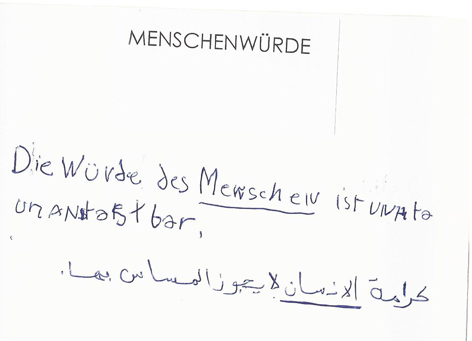 MENSCHENWÜRDE
Die Würde des Menschen ist UNAta
UNANtaßtbar,
كرامة الانسان لا يجوز المساس بها.